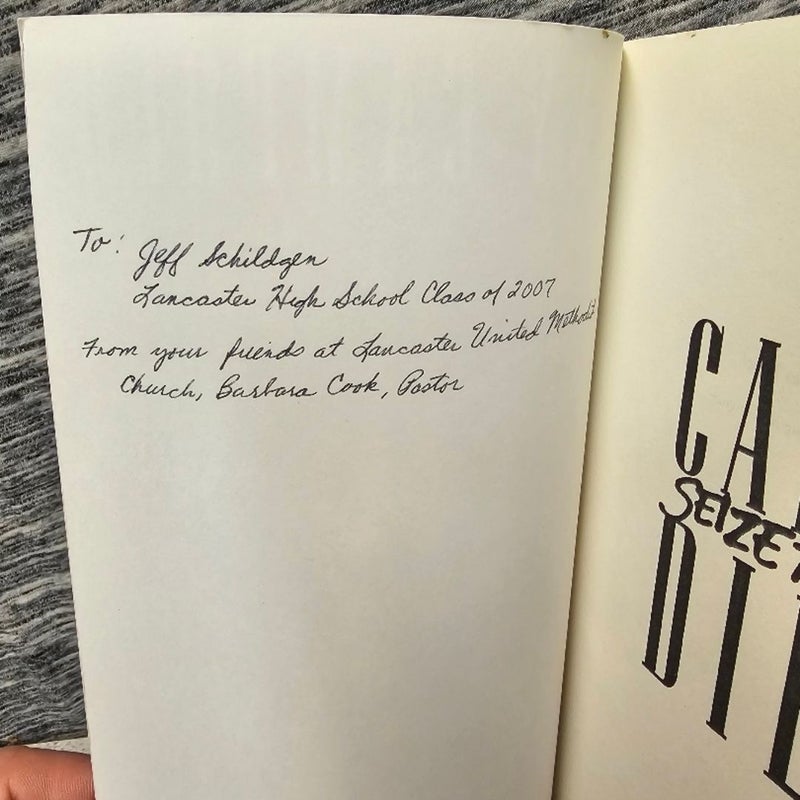 To: Jeff Schildgen
Lancaster High School Class of 2007
From your friends at Lancaster United Methodist
Church, Barbara Cook, Pastor
CA
SEIZE
DIE